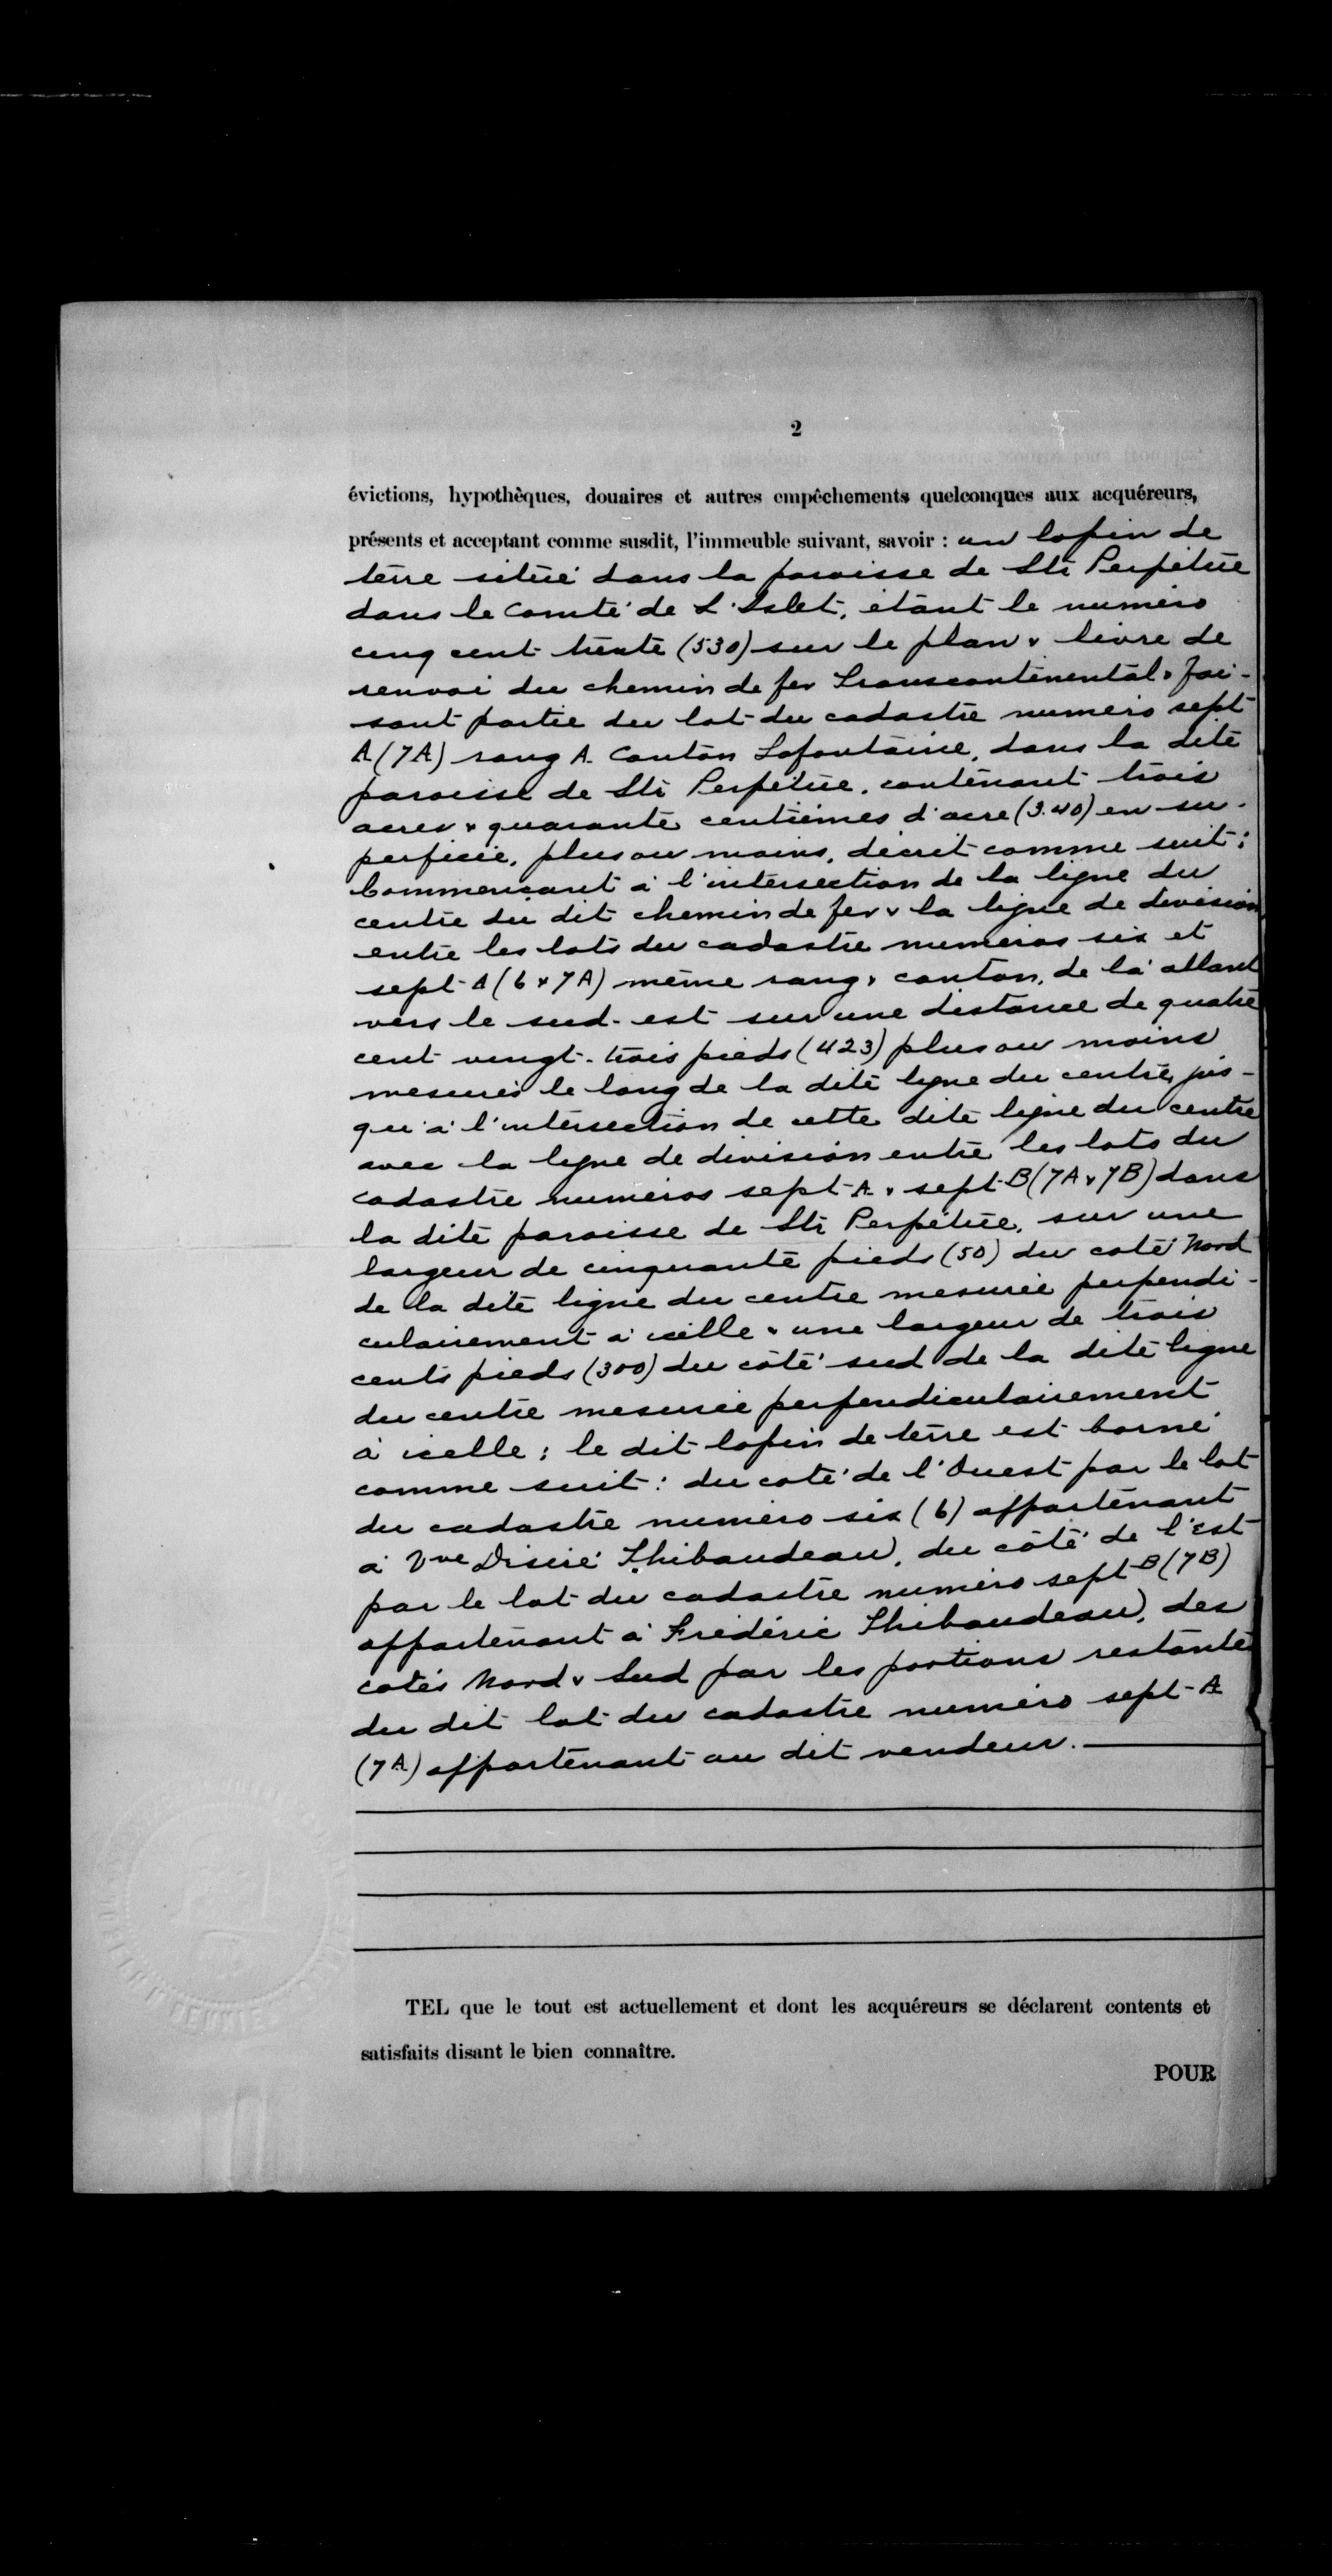 2
évictions, hypothèques, douaires et autres empêchements quelconques aux acquéreurs,
présents et acceptant comme susdit, l'immeuble suivant, savoir : un lopin de
terre situé dans la paroisse de Ste Perpétue
dans le Comté de L'Islet, étant le numéro
cinq cent trente (530) sur le plan & livre de
renvoi du chemin de fer Transcontinental & fai-
sant partie du lot du cadastre numéro sept
A (7A) rang A. Canton Lafontaine, dans la dite
paroisse de Ste Perpétue, contenant trois
acres & quarante centièmes d'acre (3.40) en su-
perficie, plus ou moins, décrit comme suit :
Commençant à l'intersection de la ligne du
centre du dit chemin de fer & la ligne de division
entre les lots du cadastre numéros six et
sept A (6 & 7A) même rang & canton, de là allant
vers le sud-est sur une distance de quatre
cent vingt-trois pieds (423) plus ou moins
mesurés le long de la dite ligne du centre, jus-
qu'à l'intersection de cette dite ligne du centre
avec la ligne de division entre les lots du
cadastre numéros sept A & sept B (7A & 7B) dans
la dite paroisse de Ste Perpétue, sur une
largeur de cinquante pieds (50) du coté Nord
de la dite ligne du centre mesurée perpendi-
culairement à icelle & une largeur de trois
cents pieds (300) du côté sud de la dite ligne
du centre mesurée perpendiculairement
à icelle ; le dit lopin de terre est borné
comme suit : du coté de l'Ouest par le lot
du cadastre numéro six (6) appartenant
à Vve Désiré Thibaudeau, du côté de l'Est
par le lot du cadastre numéro sept B (7B)
appartenant à Frédéric Thibaudeau, des
cotés Nord & Sud par les portions restante
du dit lot du cadastre numéro sept A
(7A) appartenant au dit vendeur.
TEL que le tout est actuellement et dont les acquéreurs se déclarent contents et
satisfaits disant le bien connaître.
POUR